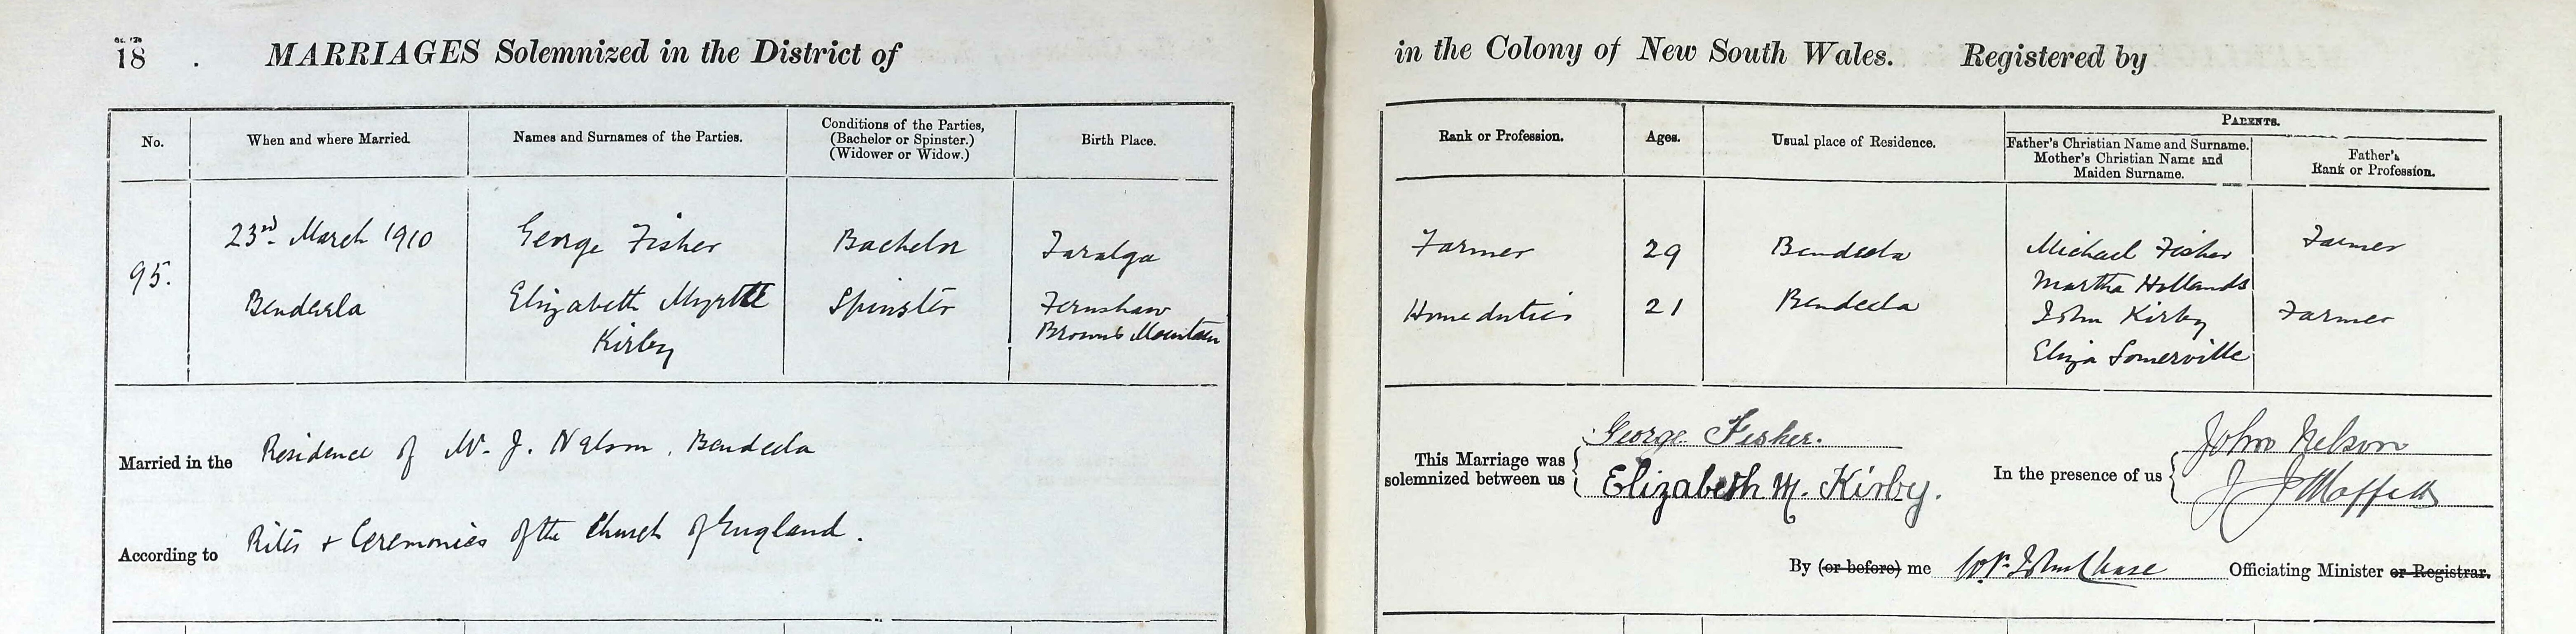 18
MARRIAGES Solemnized in the District of
in the Colony of New South Wales. Registered by
No.
When and where Married.
Names and Surnames of the Parties.
Conditions of the Parties,
(Bachelor or Spinster.)
(Widower or Widow.)
Birth Place.
Rank or Profession.
Ages.
Usual place of Residence.
PARENTS.
Father's Christian Name and Surname.
Mother's Christian Name and
Maiden Surname.
Father's
Rank or Profession.
95.
23rd March 1910
Bendeela
George Fisher
Elizabeth Myrtle
Kirby
Bachelor
Spinster
Taralga
Fernshaw
Browns Mountain
Farmer
Home duties
29
21
Bendeela
Bendeela
Michael Fisher
Martha Hollands
John Kirby
Eliza Somerville
Farmer
Farmer
Married in the Residence of Mr. J. Nelson, Bendeela
According to Rites + Ceremonies of the Church of England.
This Marriage was
solemnized between us
George Fisher.
Elizabeth M. Kirby.
In the presence of us
John Nelson
J J Moffitt
By (or before) me Wm. John Chase Officiating Minister or Registrar.